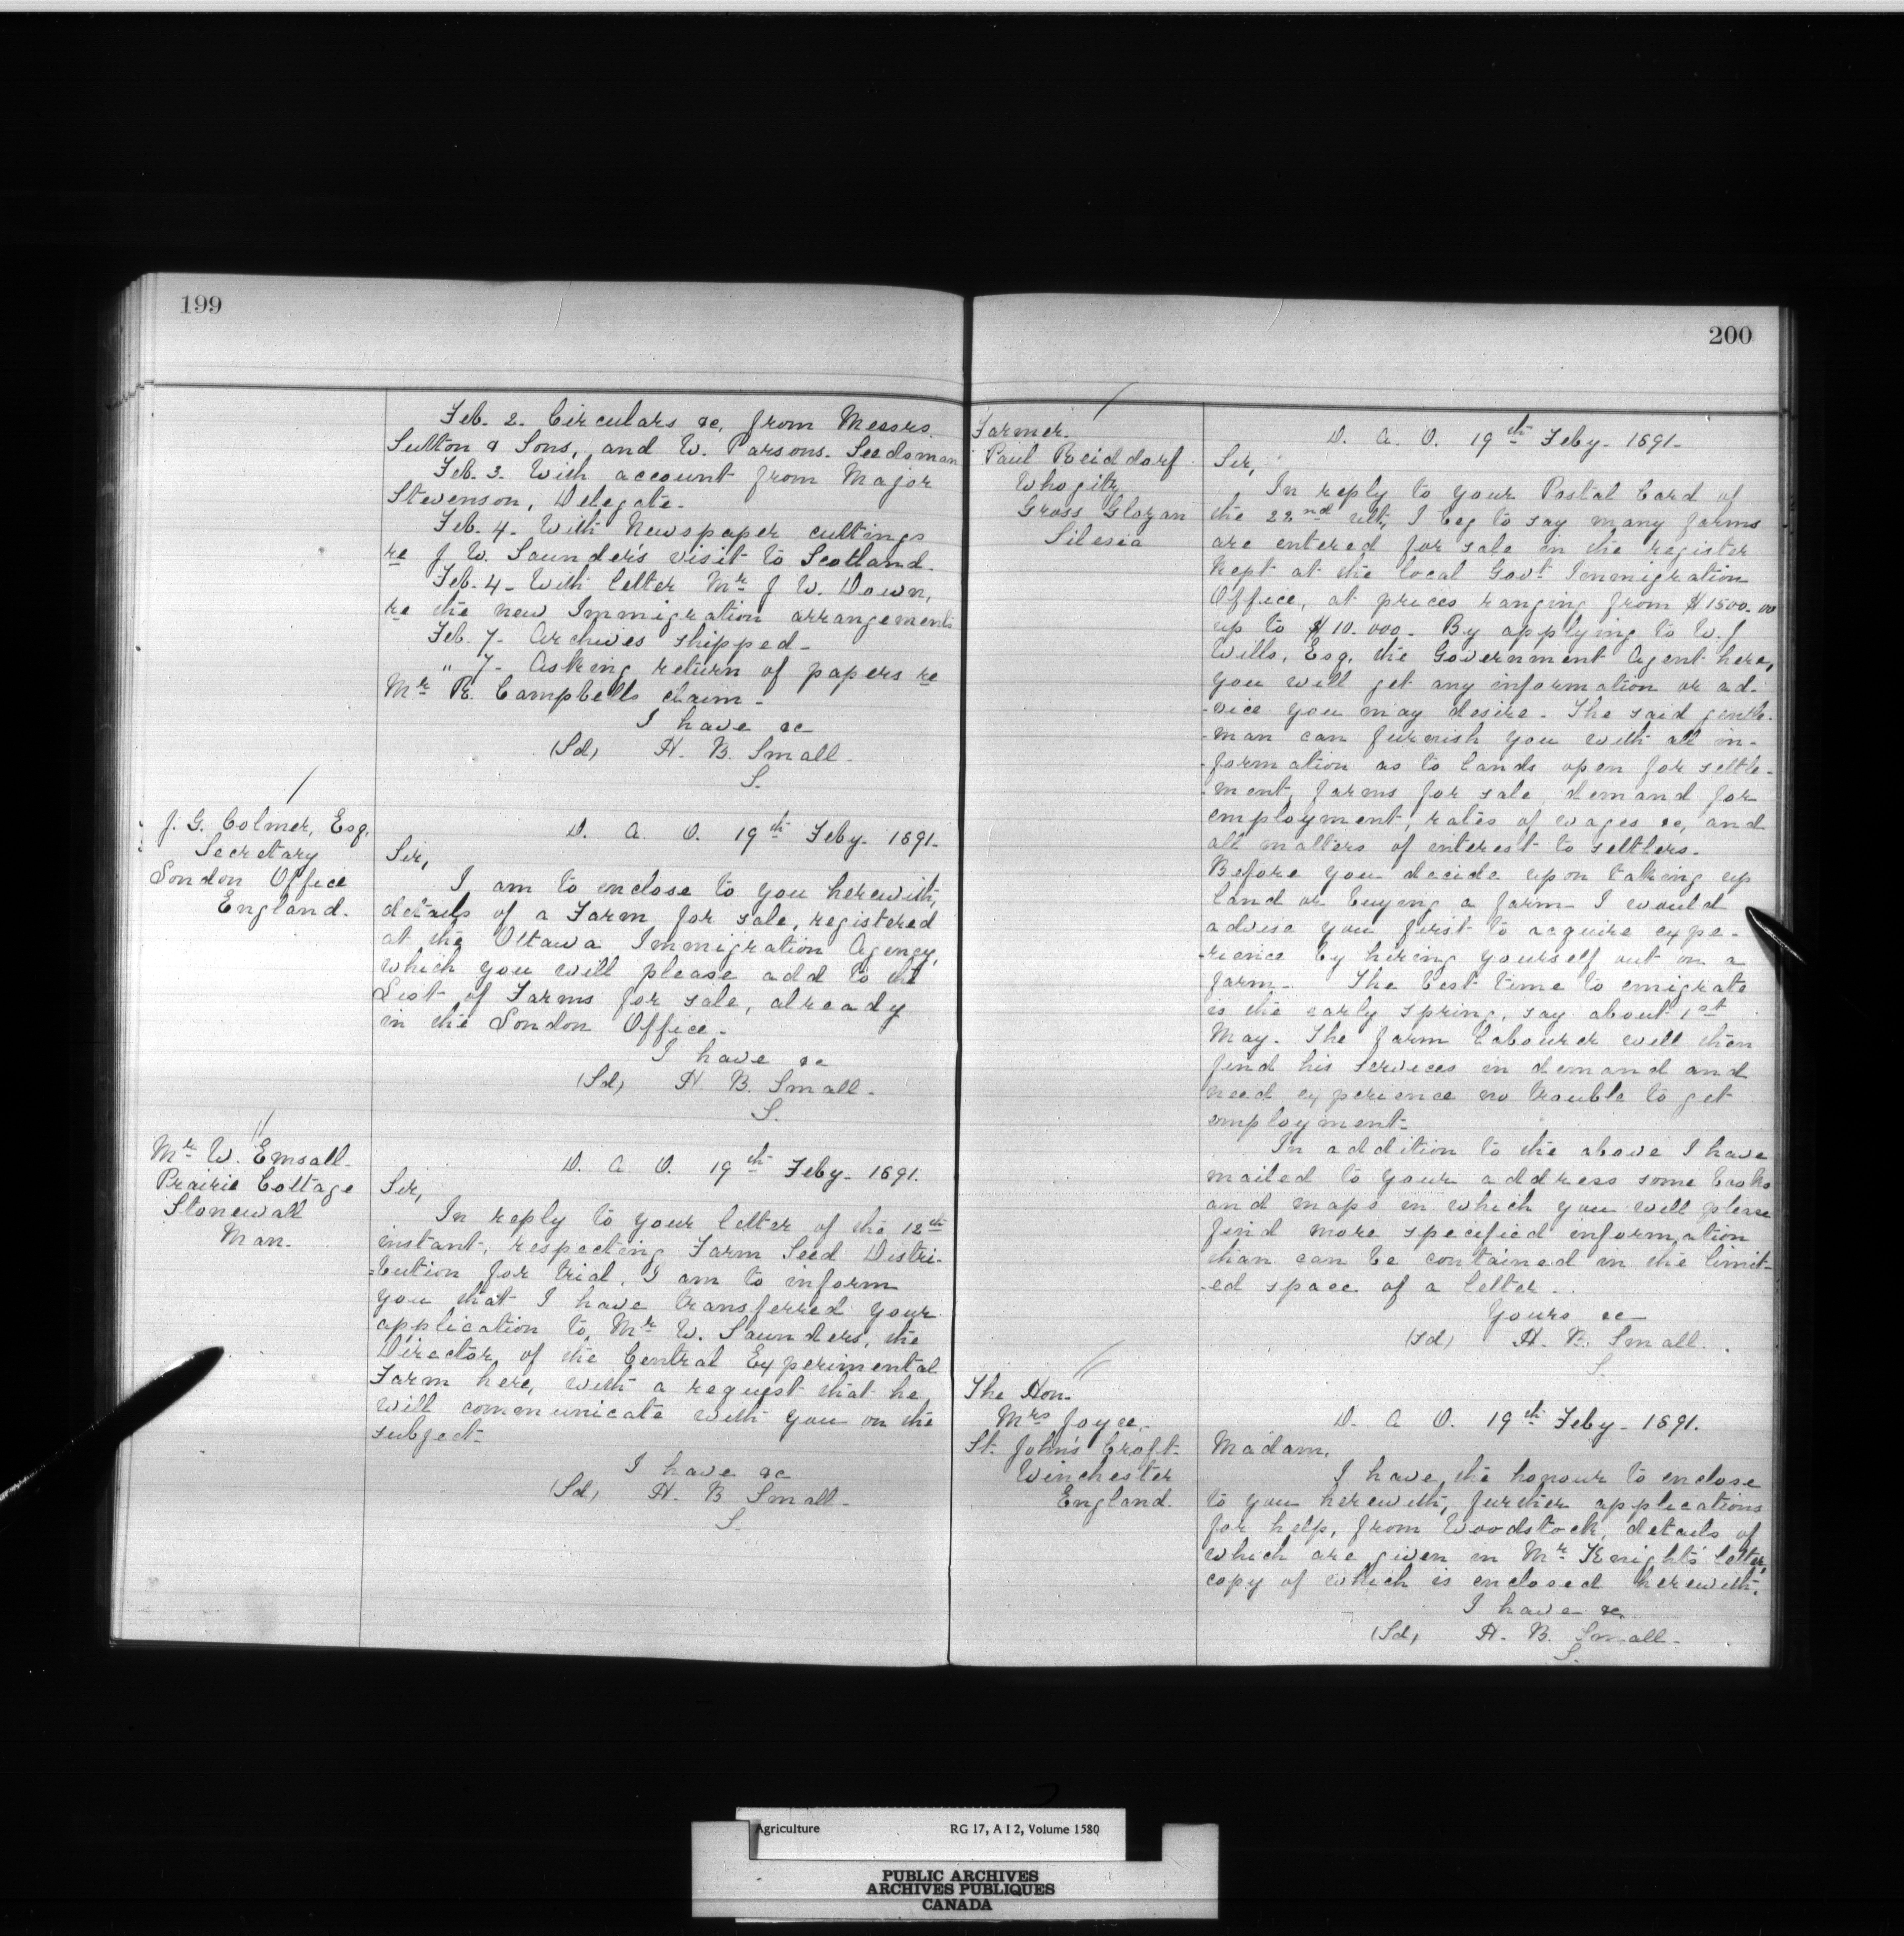 199
Feb. 2. Circulars &c, from Messrs.
Sutton & Sons, and W. Parsons. Seedsman
Feb. 3. With account from Major
Stevenson, Delegate.
Feb. 4. With Newspaper cuttings
re J W. Saunder's visit to Scotland.
Feb. 4 - With letter Mr. J W. Down,
re the new Immigration arrangements
Feb. 7 - Archives shipped -
" 7 - Asking return of papers re
Mr. R. Campbells claim -
I have &c
(Sd) H. B. Small.
S.
J. G. Colmer, Esq.
Secretary
London Office
England.
D. A. O. 19th Feby - 1891 -
Sir,
I am to enclose to you herewith,
details of a Farm for sale, registered
at the Ottawa Immigration Agency,
which you will please add to the
List of Farms for sale, already
in the London Office -
I have &c
(Sd) H. B. Small -
S.
Mr. W. Emsall.
Prairie Cottage
Stonewall
Man.
D. A O. 19th Feby - 1891.
Sir,
In reply to your letter of the 12th
instant, respecting Farm Seed Distri-
=bution for trial, I am to inform
you that I have transferred your
application to Mr. W. Saunders, the
Director of the Central Experimental
Farm here, with a request that he
will communicate with you on the
subject -
I have &c
(Sd) H. B. Small -
S.
200
Farmer.
Paul Reiddorf
Gross Glogan
Silesia
D. A. O. 19th Feby - 1891 -
Sir,
In reply to your Postal Card of
the 22nd ult, I beg to say many farms
are entered for sale in the register
kept at the local Govt Immigration
Office, at prices ranging from $1500.00
up to $10.000 - By applying to W. J
Wills, Esq, the Government Agent here,
you will get any information or ad-
-vice you may desire - The said gentle-
-man can furnish you with all in-
-formation as to lands open for settle-
-ment, farms for sale, demand for
employment, rates of wages &c, and
all matters of interest to settlers -
Before you decide upon taking up
land or buying a farm - I would
advise you first to acquire expe-
-rience by hiring yourself out on a
farm - The best time to emigrate
is the early spring, say about 1st
May - The farm labourer will then
find his services in demand and
need experience no trouble to get
employment -
In addition to the above I have
mailed to your address some books
and maps in which you will please
find more specified information
than can be contained in the limit-
-ed space of a letter.
Yours &c
(sd) H. B. Small.
S.
The Hon.
Mrs Joyce,
St. John's Croft -
Winchester
England.
D. A O. 19th Feby - 1891.
Madam,
I have the honour to enclose
to you herewith, further applications
for help, from Woodstock, details of
which are given in Mr. Knight's letter,
copy of which is enclosed herewith.
I have &c.
(Sd) H. B. Small -
S.
Agriculture RG 17, A I 2, Volume 1580
PUBLIC ARCHIVES
ARCHIVES PUBLIQUES
CANADA